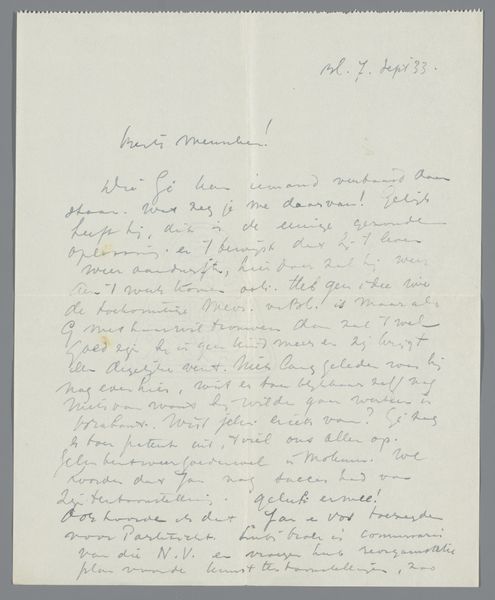 Bl. 7. Sept 33.
Beste Menschen!
Die Gé kan iemand verbaasd doen
staan. Wat zeg je me daarvan! Gelijk
heeft hij, dit is de eenige gezonde
oplossing. en 't bewijst dat hij 't leven
weer aandurft, hierdoor zal hij weer
aan 't werk komen ook. Heb geen idee wie
de toekomstige Mevr. v. Bl. is maar als
G met haar wil trouwen dan zal 't wel
goed zijn hij is geen kind meer en zij krijgt
een degelijke vent. Niet lang geleden was hij
nog even hier, wist er toen blijkbaar zelf nog
niets van want hij wilde gaan werken in
Brabant. Wist jelui er iets van? Gé zag
er toen patent uit, 't viel ons allen op.
Jelui bent weer goed en wel in Mokum. We
hoorden dat Jan nog succes had van
zijn tentoonstelling. geluk ermee!
Ook hoorde ik dat Jan e vot toetreden
voor Partricht. Huib is commissaris
van die N.V. en vroeger had reorganisatie
plan voor de kunst tentoonstellingen, zoo